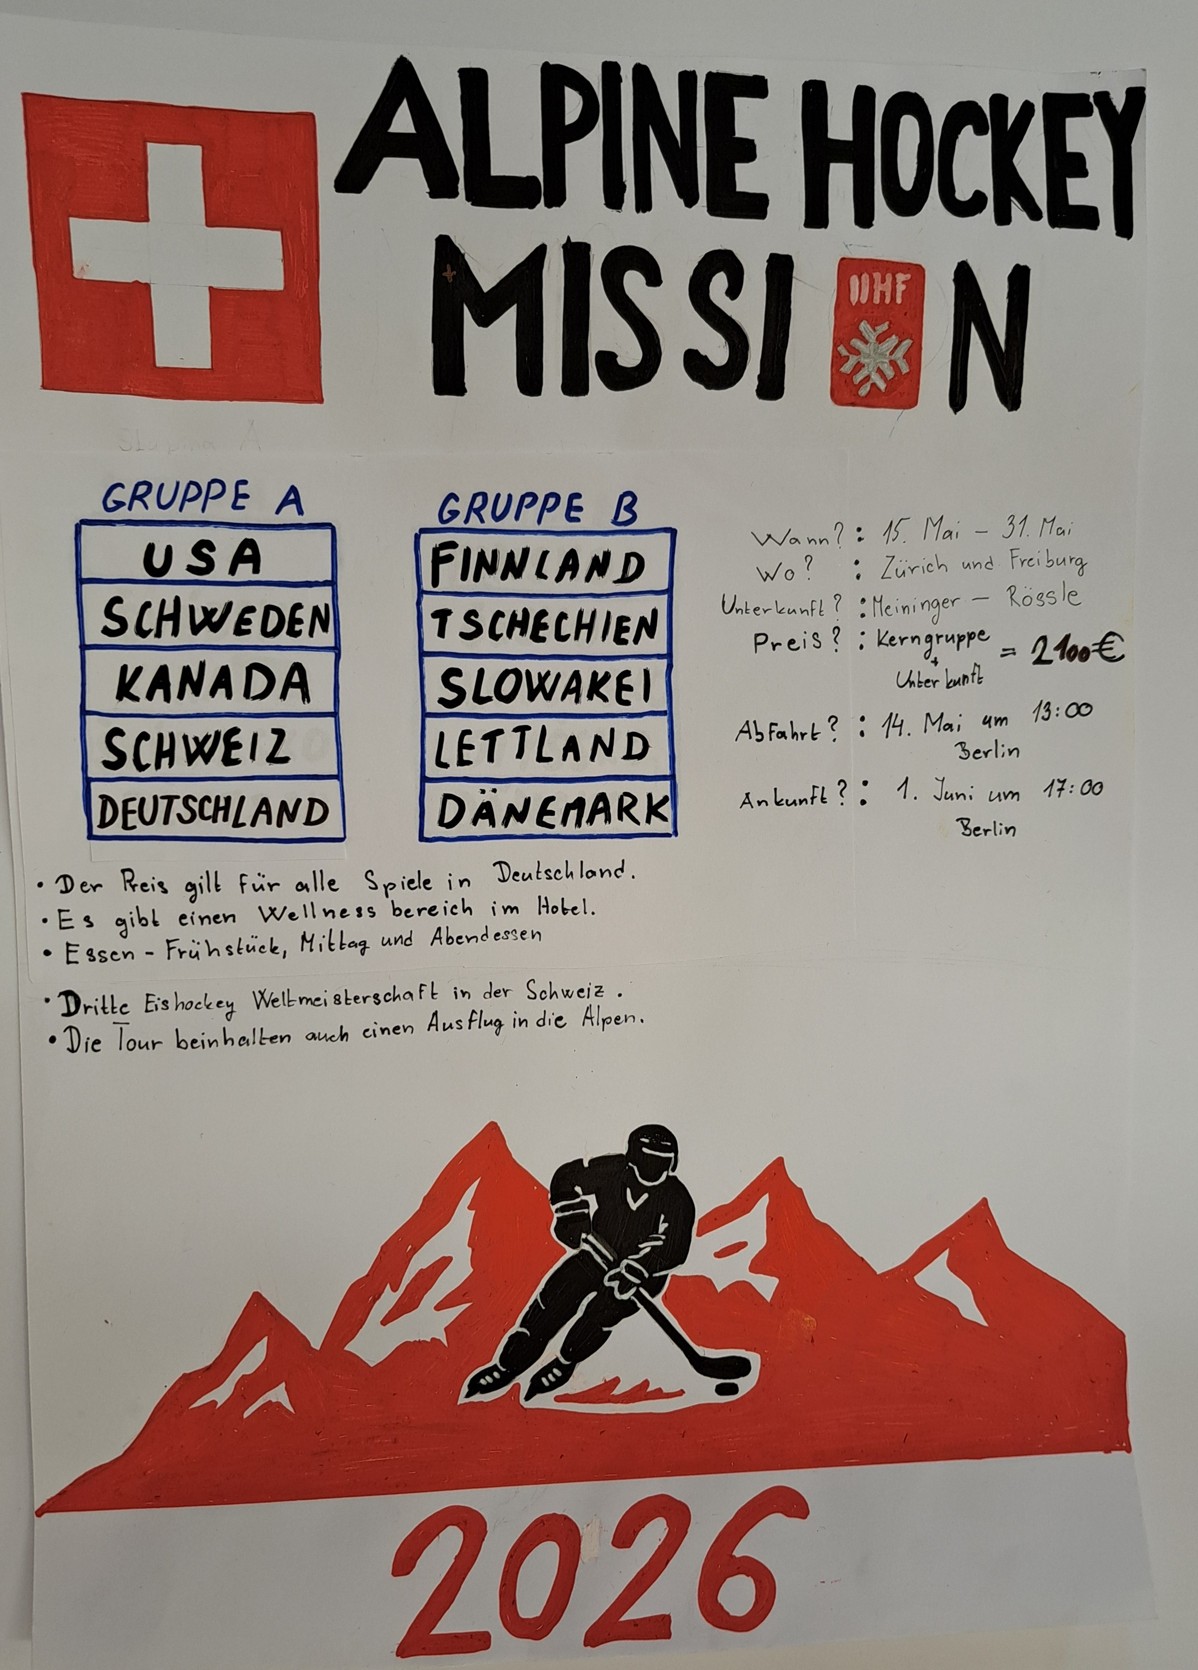 ALPINE HOCKEY
MISSI N
IIHF
GRUPPE A
USA
SCHWEDEN
KANADA
SCHWEIZ
DEUTSCHLAND
GRUPPE B
FINNLAND
TSCHECHIEN
SLOWAKEI
LETTLAND
DÄNEMARK
Wann? : 15. Mai – 31. Mai
Wo? : Zürich und Freiburg
Unterkunft? : Meininger – Rössle
Preis? : Kerngruppe
+
Unterkunft
= 2100€
Abfahrt? : 14. Mai um 13:00
Berlin
Ankunft? : 1. Juni um 17:00
Berlin
• Der Preis gilt für alle Spiele in Deutschland.
• Es gibt einen Wellness bereich im Hotel.
• Essen – Frühstück, Mittag und Abendessen
• Dritte Eishockey Weltmeisterschaft in der Schweiz.
• Die Tour beinhalten auch einen Ausflug in die Alpen.
2026